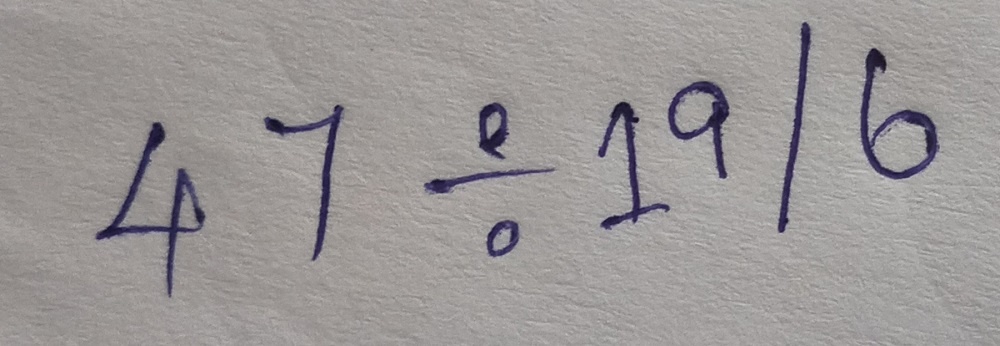 47 ÷ 19 / 6